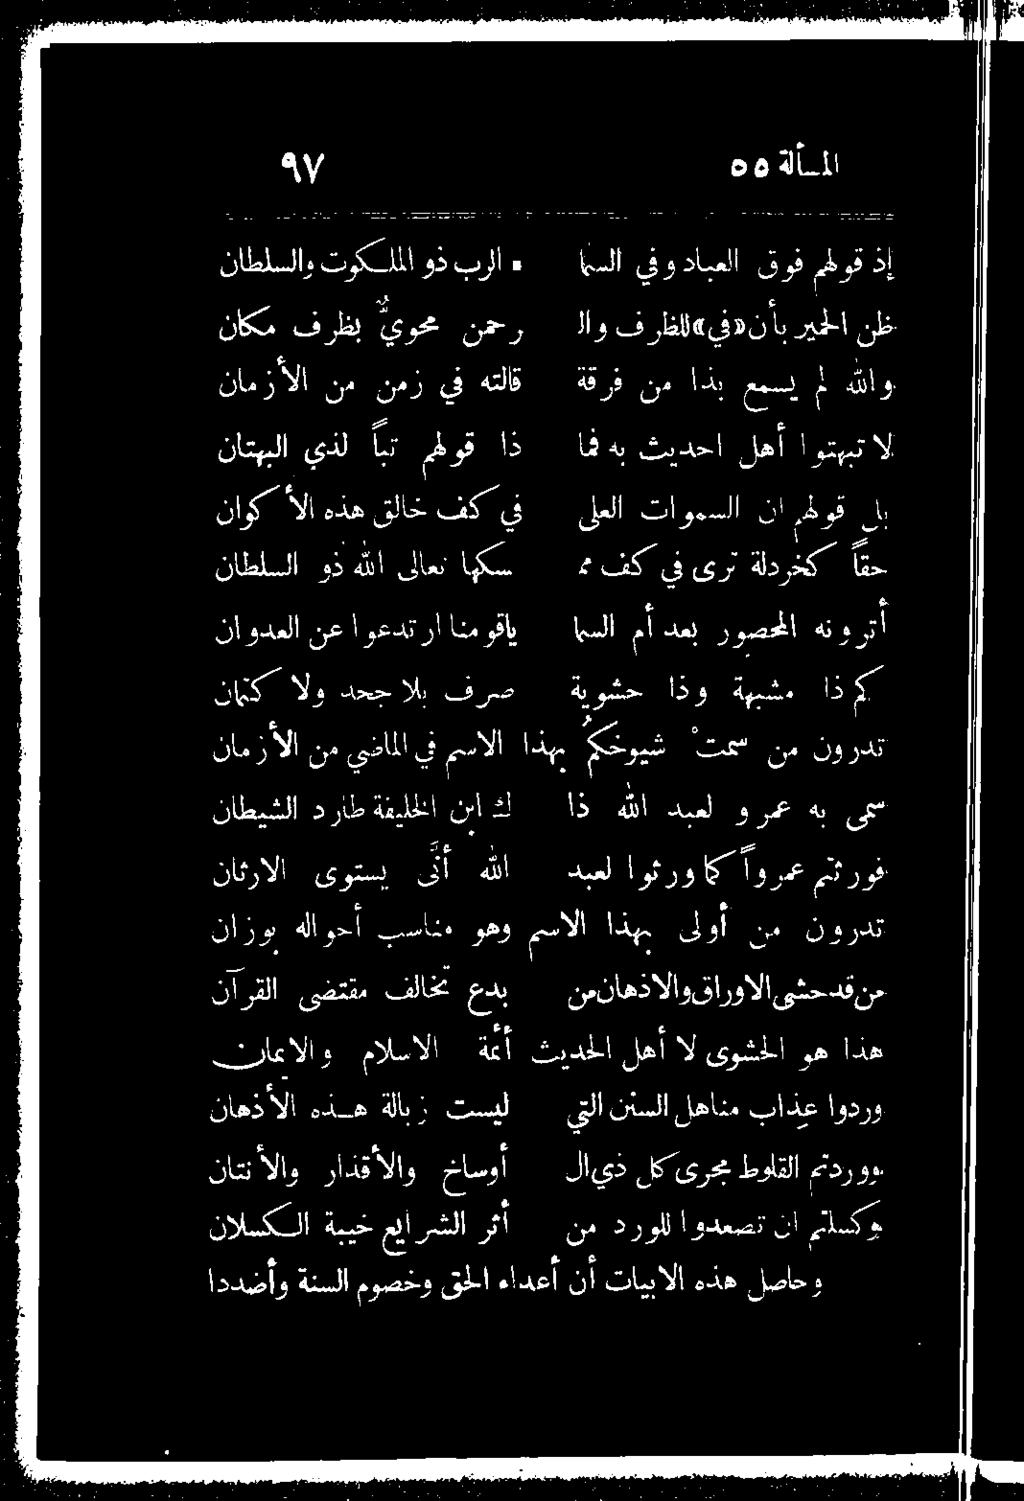 المسألة ٥٥ ٩٧
إذ قولهم فوق العباد وفي السما الرب ذو الملكوت والسلطان
ظن الحمير بأن «في» للظرف وال رحمن محويٌّ بظرف مكان
والله لم يسمع بذا من فرقة قالته في زمن من الأزمان
لا تبهتوا أهل الحديث به فما ذا قولهم تباً لذي البهتان
بل قولهم ان السموات العلى في كف خالق هذه الأكوان
حقاً كخردلة ترى في كف مم سكها تعالى الله ذو السلطان
أترونه المحصور بعد أم السما ياقومنا ارتدعوا عن العدوان
كم ذا مشبهة وذا حشوية صرف بلا جحد ولا كتمان
تدرون من سمتْ شيوخكمُ بهذا الاسم في الماضي من الأزمان
سمى به عمرو لعبد الله ذا ك ابن الخليفة طارد الشيطان
فورثتم عمرواً كما ورثوا لعبد الله أنَّى يستوى الارثان
تدرون من أولى بهذا الاسم وهو مناسب أحواله بوزان
من قد حشى الاوراق والاذهان من بدع تخالف مقتضى القرآن
هذا هو الحشوى لا أهل الحديث أئمة الاسلام والايمان
وردوا عذاب مناهل السنن التي ليست زبالة هذه الأذهان
ووردتم القلوط مجرى كل ذي ال أوساخ والأقذار والأنتان
وكسلتم ان تصعدوا للورد من أثر الشرايع خيبة الكسلان
وحاصل هذه الابيات أن أعداء الحق وخصوم السنة وأضددا